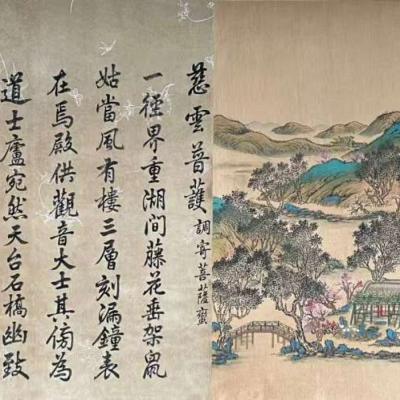 慈雲普護調寄菩薩蠻
一徑界重湖間藤花垂架鼠
姑當風有樓三層刻漏鐘表
在焉殿供觀音大士其傍為
道士廬宛然天台石橋幽致